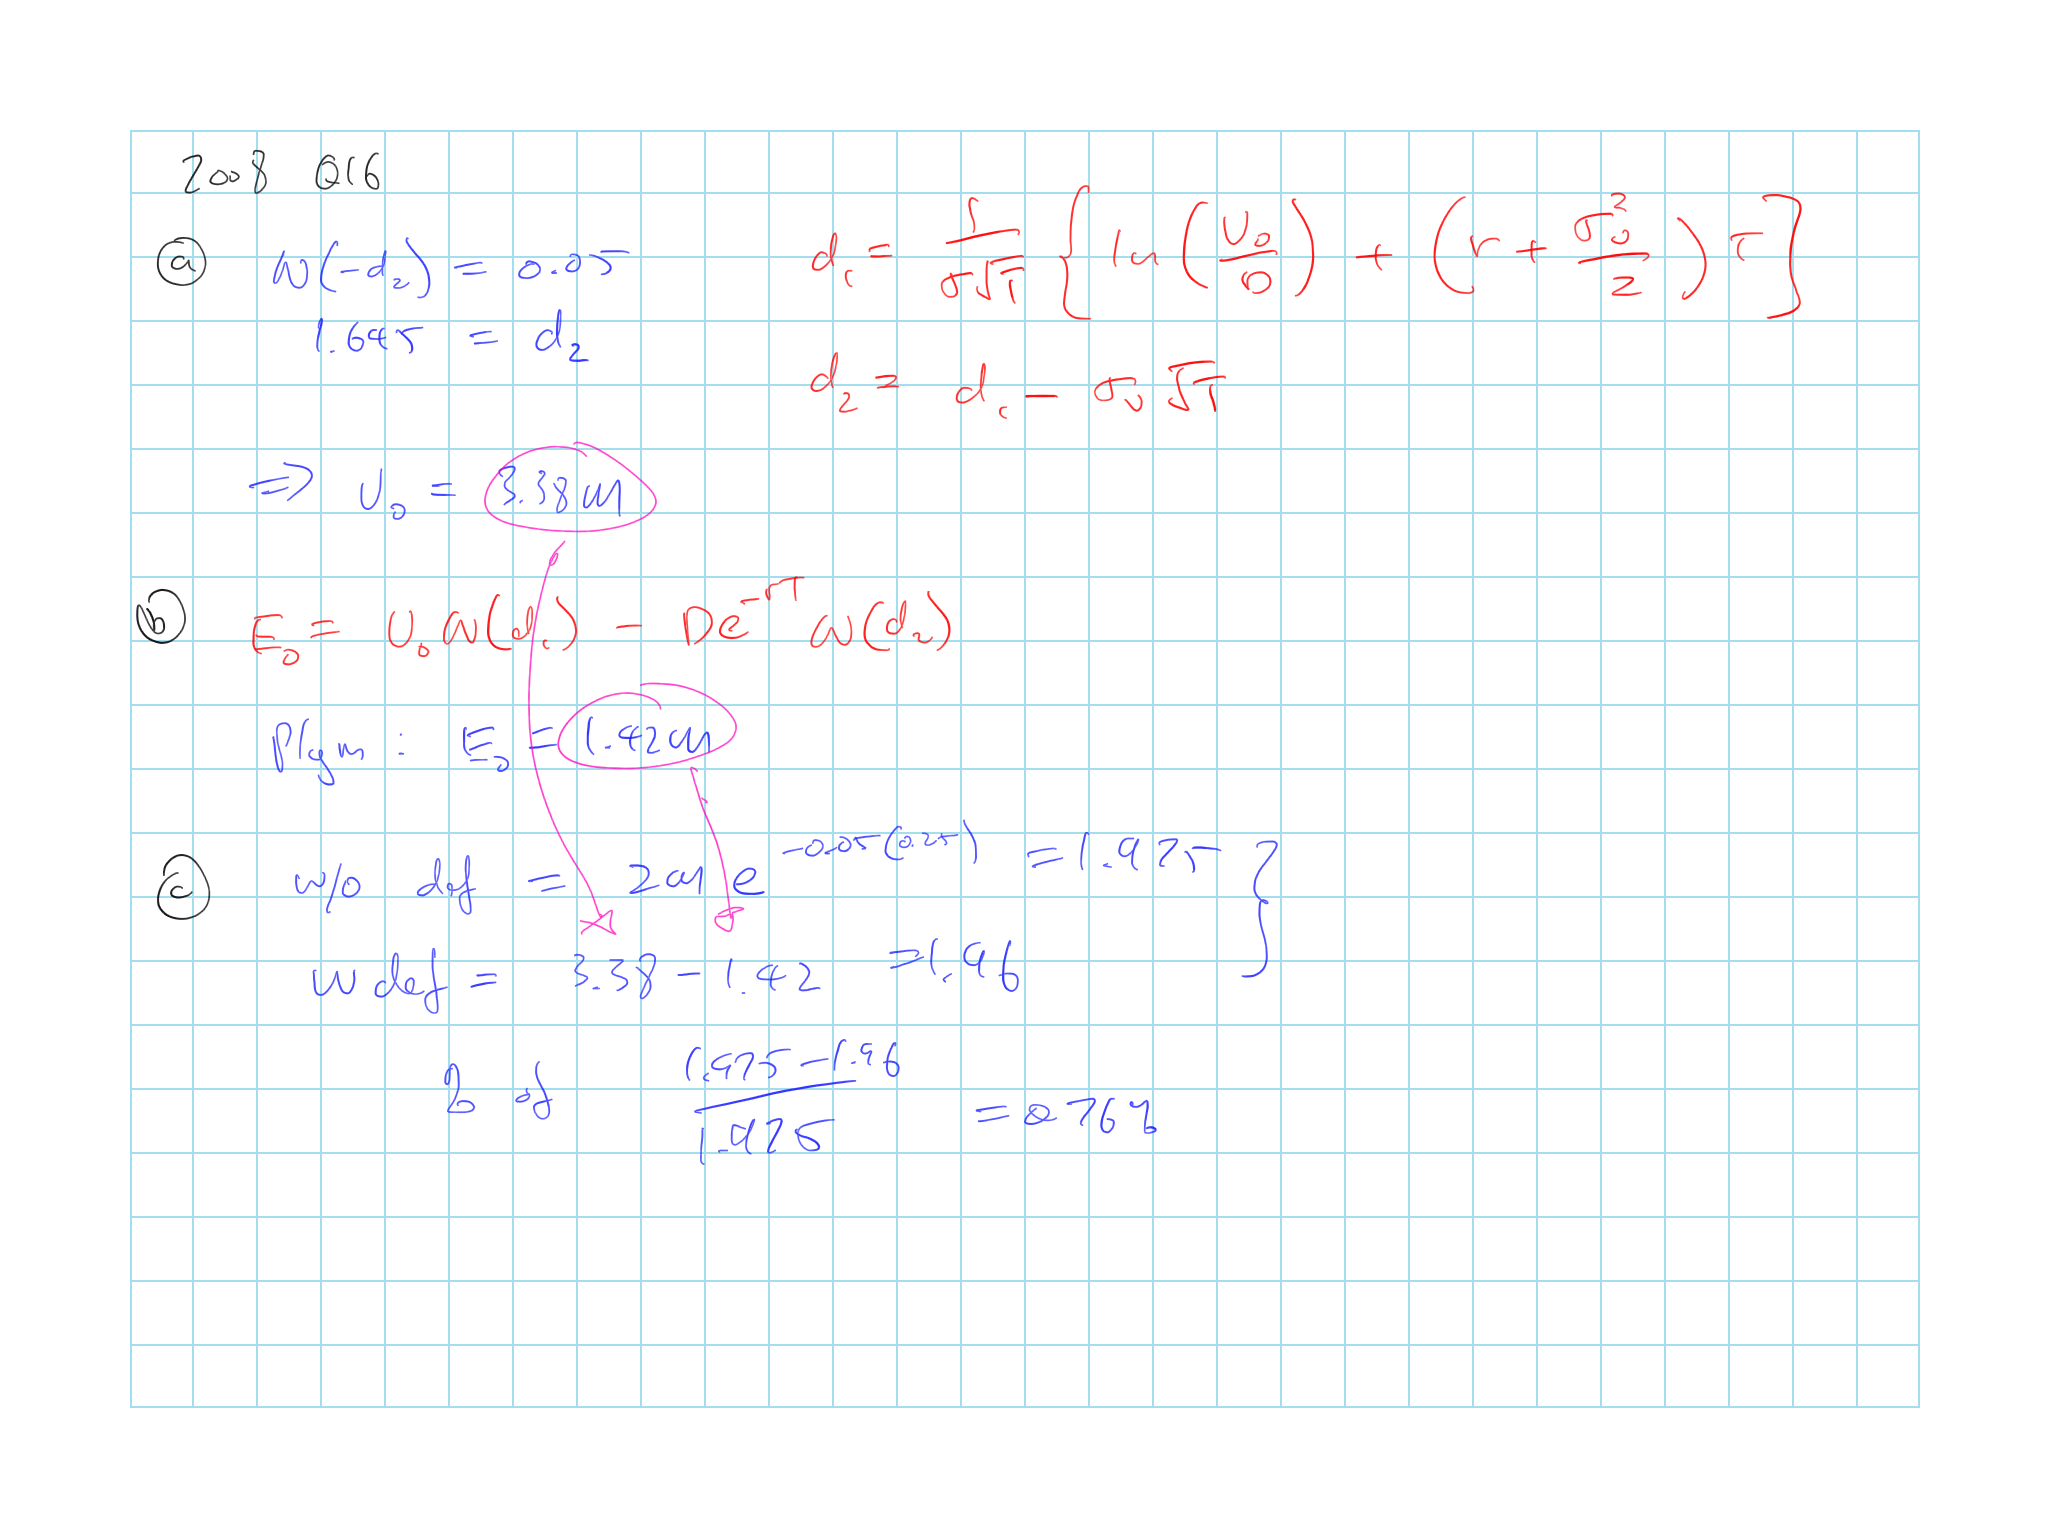 2008 Q16
(a) N(-d₂) = 0.05
1.645 = d₂
d₁ = 1/(σ√T) { ln(V₀/D) + (r + σᵥ²/2) T ]
d₂ = d₁ - σᵥ√T
⇒ V₀ = 3.38m
(b) E₀ = V₀N(d₁) - De^(-rT) N(d₂)
Plgin : E₀ = 1.42m
(c) w/o def = 2m e^(-0.05(0.25)) = 1.975 }
w def = 3.38 - 1.42 = 1.96
% of (1.975 - 1.96)/1.975 = 0.76%